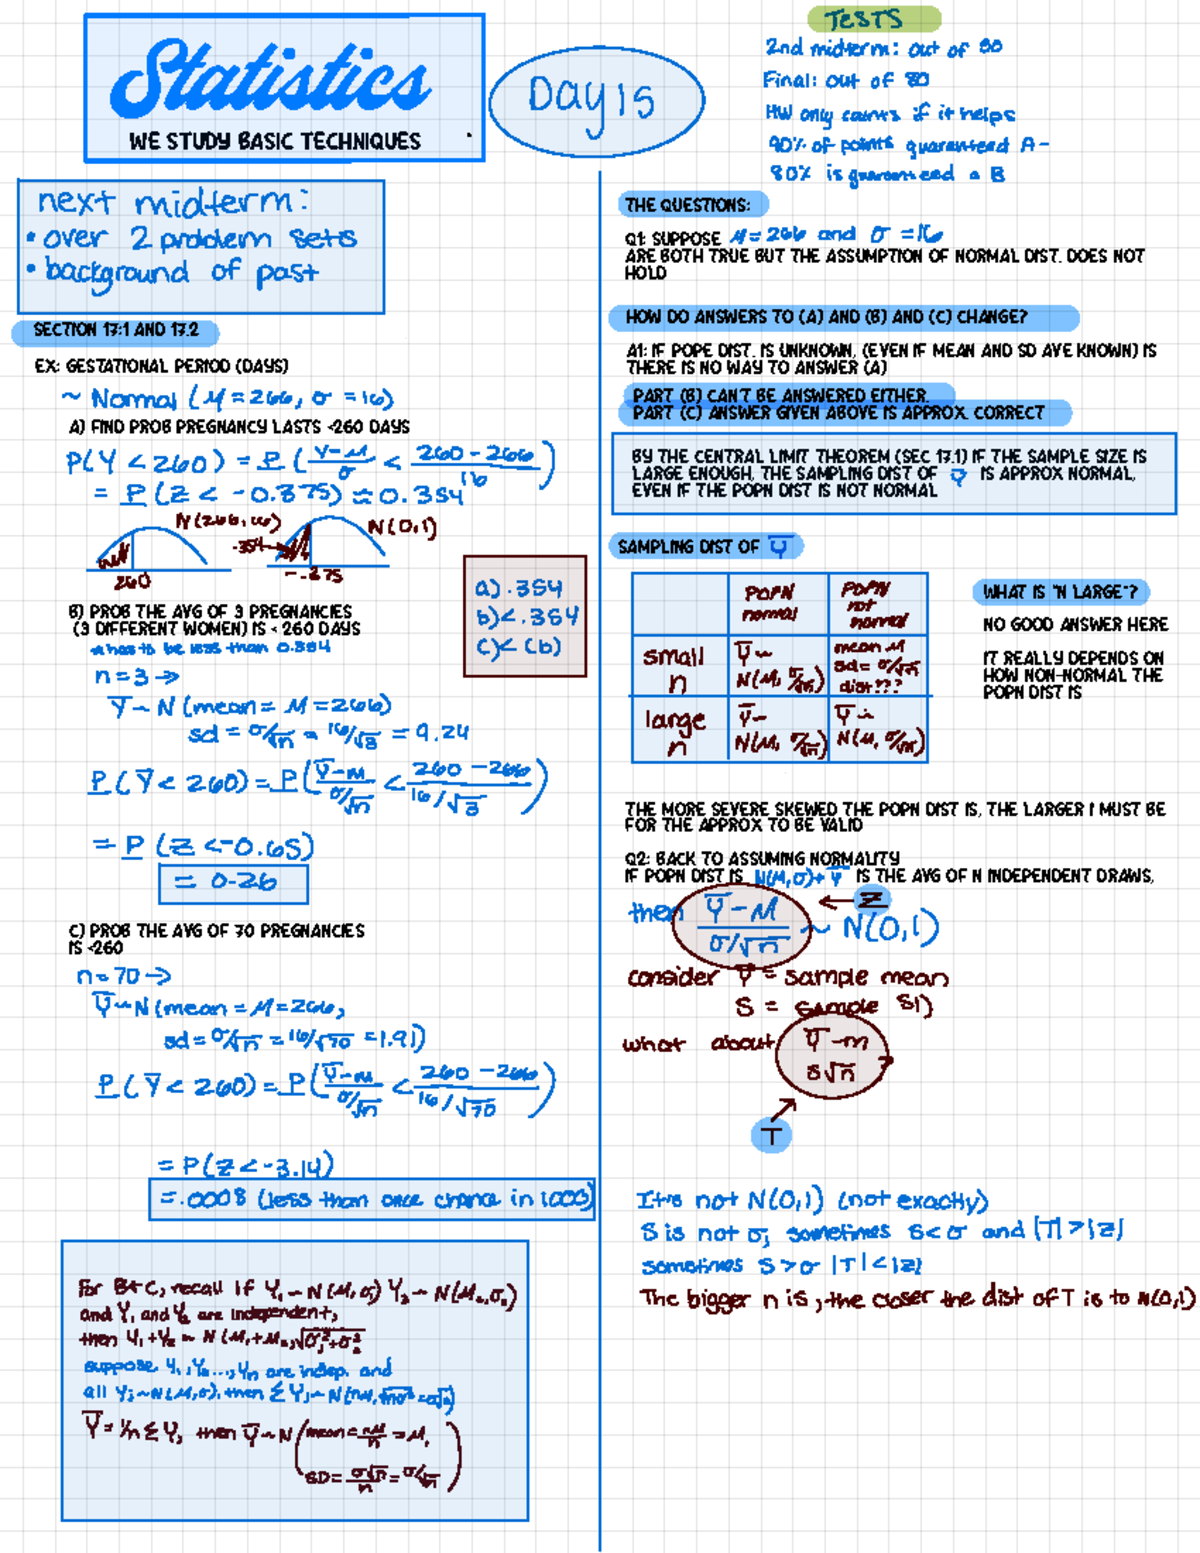 Statistics
WE STUDY BASIC TECHNIQUES
Day 15
TESTS
2nd midterm: out of 80
Final: out of 80
HW only counts if it helps
90% of points guaranteed A-
80% is guaranteed a B
next midterm:
• over 2 problem sets
• background of past
SECTION 17.1 AND 17.2
EX: GESTATIONAL PERIOD (DAYS)
~ Normal (μ=266, σ=16)
A) FIND PROB PREGNANCY LASTS <260 DAYS
P(Y < 260) = P( Y-μ/σ < 260-266/16 )
= P(Z < -0.375) ≈ 0.354
N(266,16)
.354
N(0,1)
260
-.375
a) .354
b) < .354
c) < (b)
B) PROB THE AVG OF 3 PREGNANCIES
(3 DIFFERENT WOMEN) IS < 260 DAYS
* has to be less than 0.354
n=3 →
Y̅ ~ N (mean = μ = 266)
sd = σ/√n = 16/√3 = 9.24
P(Y̅ < 260) = P( Y̅-μ/σ/√n < 260-266/16/√3 )
= P (Z < -0.65)
= 0.26
C) PROB THE AVG OF 70 PREGNANCIES
IS <260
n=70 →
Y̅ ~ N (mean = μ = 266,
sd = σ/√n = 16/√70 = 1.91)
P(Y̅ < 260) = P( Y̅-μ/σ/√n < 260-266/16/√70 )
= P(Z < -3.14)
= .0008 (less than once chance in 1000)
For B+C, recall if Y₁ ~ N(μ₁,σ₁) Y₂ ~ N(μ₂,σ₂)
and Y₁ and Y₂ are independent,
then Y₁+Y₂ ~ N(μ₁+μ₂, √σ₁²+σ₂²
suppose Y₁, Y₂..., Yn are indep. and
all Yi ~ N(μ,σ), then Σ Yi ~ N(nμ, √nσ² = σ√n)
Y̅ = 1/n Σ Yi, then Y̅ ~ N (mean = nμ/n = μ,
SD = σ√n/n = σ/√n)
THE QUESTIONS:
Q1: SUPPOSE μ=266 and σ=16
ARE BOTH TRUE BUT THE ASSUMPTION OF NORMAL DIST. DOES NOT
HOLD
HOW DO ANSWERS TO (A) AND (B) AND (C) CHANGE?
A1: IF POPE DIST. IS UNKNOWN, (EVEN IF MEAN AND SD AVE KNOWN) IS
THERE IS NO WAY TO ANSWER (A)
PART (B) CAN'T BE ANSWERED EITHER.
PART (C) ANSWER GIVEN ABOVE IS APPROX. CORRECT
BY THE CENTRAL LIMIT THEOREM (SEC 17.1) IF THE SAMPLE SIZE IS
LARGE ENOUGH, THE SAMPLING DIST OF Y̅ IS APPROX NORMAL,
EVEN IF THE POPN DIST IS NOT NORMAL
SAMPLING DIST OF Y̅
POPN normal
POPN not normal
small n
Y̅ ~ N(μ, σ/√n)
mean μ sd = σ/√n dist???
large n
Y̅ ~ N(μ, σ/√n)
Y̅ ∻ N(μ, σ/√n)
WHAT IS "N LARGE"?
NO GOOD ANSWER HERE
IT REALLY DEPENDS ON
HOW NON-NORMAL THE
POPN DIST IS
THE MORE SEVERE SKEWED THE POPN DIST IS, THE LARGER I MUST BE
FOR THE APPROX TO BE VALID
Q2: BACK TO ASSUMING NORMALITY
IF POPN DIST IS N(μ,σ)+ Y̅ IS THE AVG OF N INDEPENDENT DRAWS,
then Y̅-μ/σ/√n ~ N(0,1)
← Z
consider Y̅ = sample mean
S = sample SD
what about Y̅-m/s√n ?
T
It's not N(0,1) (not exactly)
S is not σ, sometimes S<σ and |T|>|Z|
sometimes S>σ |T|<|Z|
The bigger n is, the closer the dist of T is to N(0,1)